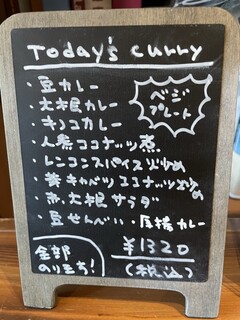 Today's Curry
・豆カレー
・大根カレー
・キノコカレー
・人参ココナッツ煮
・レンコンスパイス炒め
・黄キャベツココナッツ炒め
・赤大根サラダ
・豆せんべい・屋橋カレー
ベジ
プレート
全部
のりまち!
¥1320
(税込)